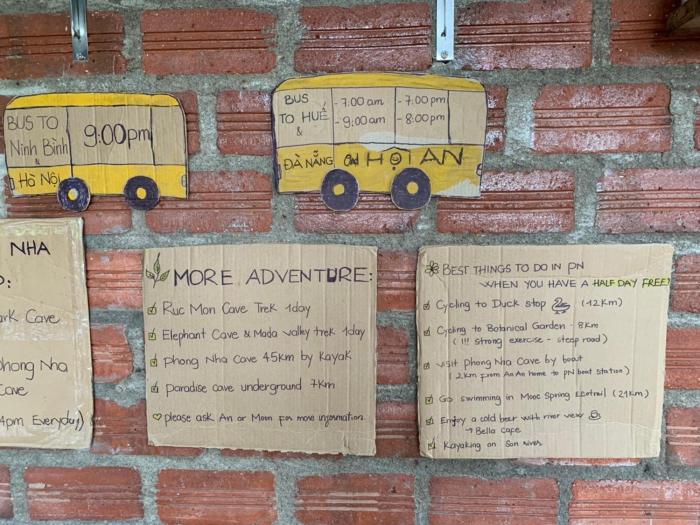 BUS TO
Ninh Bình
&
Hà Nội
9:00pm
BUS
TO HUẾ
&
ĐÀ NẴNG and HỘI AN
- 7:00 am
- 9:00 am
- 7:00 pm
- 8:00 pm
NHA
:
Cave
Nha
Cave
4pm Everyday)
MORE ADVENTURE:
Ruc Mon Cave Trek 1day
Elephant Cave & Mada valley trek 1day
phong Nha Cave 4.5km by Kayak
paradise cave underground 7km
please ask An or Moon for more information
BEST THINGS TO DO IN PN
WHEN YOU HAVE A HALF DAY FREE!
Cycling to Duck stop (12km)
Cycling to Botanical Garden - 8km
(!!! strong exercise - steep road)
visit Phong Nha Cave by boat
(2km from An An home to PN boat station)
Go swimming in Mooc Spring (21km)
Enjoy a cold beer with river view
→ Bella cafe
Kayaking on Son river